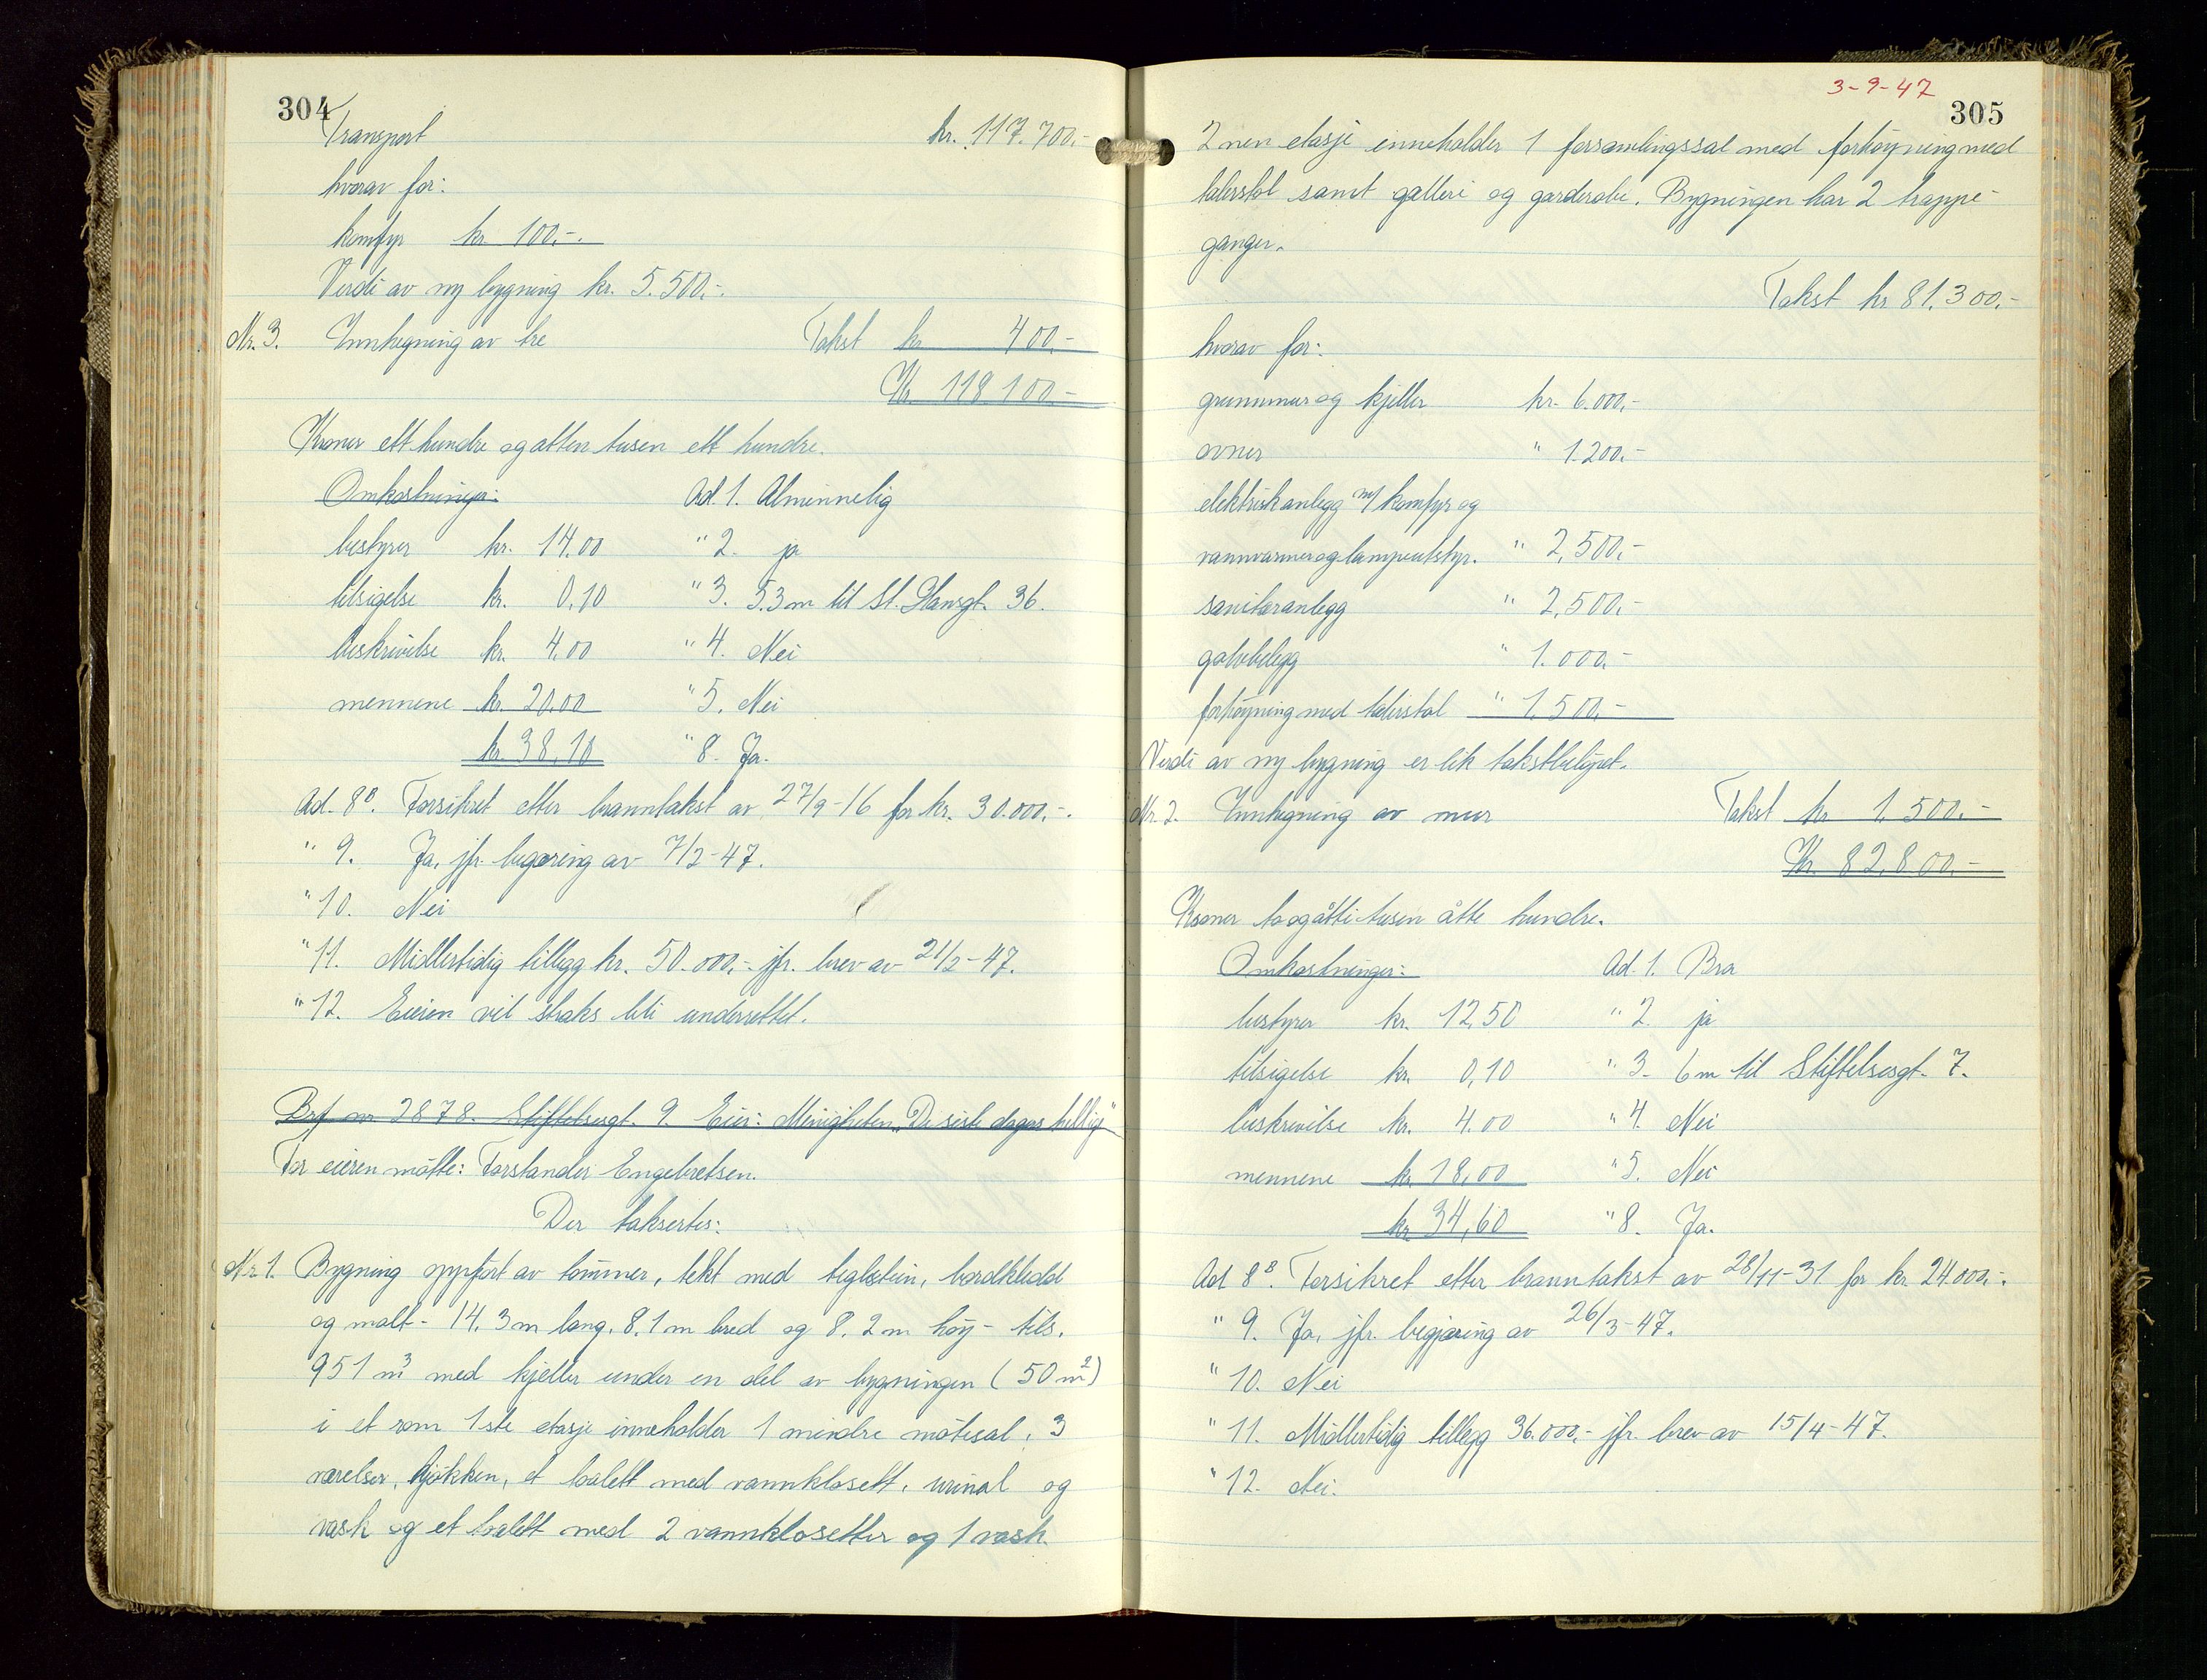 304
Transport kr. 117.700,-
hvorav for:
komfyr kr 100,-.
Verdi av ny bygning kr. 5.500,-.
Nr. 3. Innhegning av tre Takst kr 400,-
Kr 118 100,-
Kroner ett hundre og atten tusen ett hundre.
Omkostninger: Ad. 1. Alminnelig
bestyrer kr. 14.00 " 2. ja
tilsigelse kr. 0,10 " 3. 5.3 m til St. Hansgt. 36.
beskrivelse kr. 4.00 " 4. Nei
mennene kr. 20.00 " 5. Nei
kr. 38,10 " 8. Ja.
Ad. 8B. Forsikret etter branntakst av 27/9-16 for kr. 30.000,-.
" 9. Ja, jfr. begæring av 7/2-47.
" 10. Nei
" 11. Midlertidig tillegg kr. 50.000,- jfr. brev av 21/2-47.
" 12. Eieren vil straks bli underrettet.
Brf nr 2878. Stiftelsesgt. 9. Eier: Menigheten „De siste dagers hellige"
For eieren møtte: Forstander Engebretsen.
Der takseres:
Nr 1. Bygning oppført av tømmer, tekt med teglstein, bordkledd
og malt - 14.3 m lang, 8.1 m bred og 8.2 m høy - tils.
951 m3 med kjeller under en del av bygningen (50 m2)
i et rom 1ste etasje inneholder 1 mindre møtesal, 3
værelser, kjøkken, et toalett med vannklosett, urinal og
vask og et toalett med 2 vannklosetter og 1 vask.
3-9-47
305
2 nen etasje inneholder 1 forsamlingssal med forhøyning med
talerstol samt galleri og garderobe. Bygningen har 2 trappe-
ganger.
Takst kr 81.300,-
hvorav for:
grunnmur og kjeller kr. 6.000,-
ovner " 1.200,-
elektrisk anlegg m/ komfyr og
vannvarmer og lampeutstyr. " 2,500,-
sanitæranlegg " 2,500,-
golvbelegg " 1.000,-
forhøyning med talerstol " 1,500,-
Verdi av ny bygning er lik takstbeløpet.
Nr. 2. Innhegning av mur Takst kr 1.500.-
Kr. 82.800.-
Kroner to og åtti tusen åtte hundre.
Omkostninger: Ad. 1. Bra
bestyrer kr. 12,50 " 2. ja
tilsigelse kr. 0,10 " 3. 6 m til Stiftelsesgt. 7.
beskrivelse kr. 4.00 " 4. Nei
mennene kr. 18,00 " 5. Nei
kr 34,60 " 8. Ja.
Ad 8B. Forsikret etter branntakst av 28/11-31 for kr. 24.000,-.
" 9. Ja, jfr. begjæring av 26/3-47.
" 10. Nei
" 11. Midlertidig tillegg 36.000,- jfr. brev av 15/4-47.
" 12. Nei.